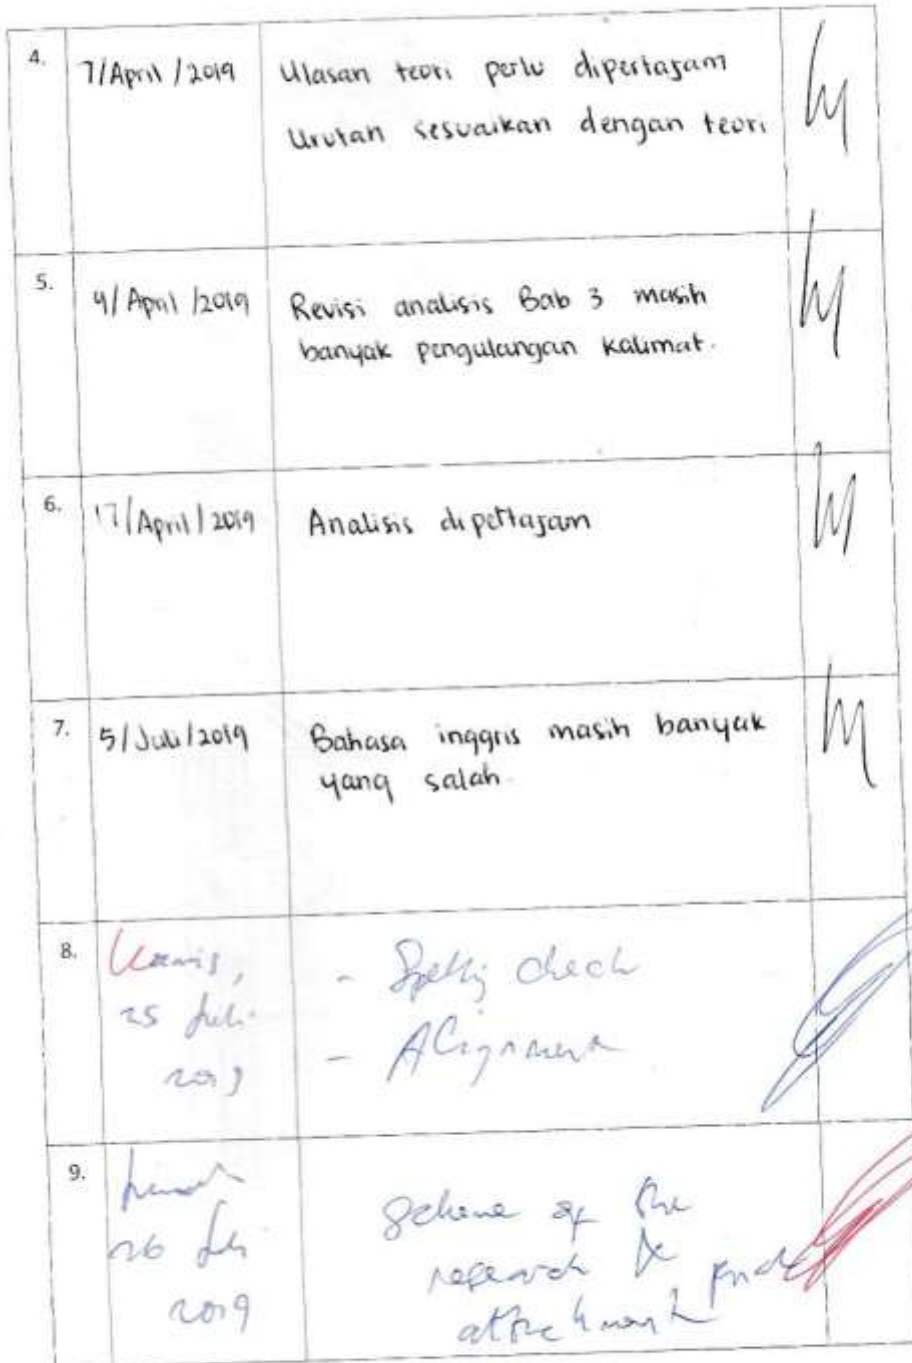 4. 7/April/2019 Ulasan teori perlu dipertajam
Urutan sesuaikan dengan teori
5. 4/April/2019 Revisi analisis Bab 3 masih
banyak pengulangan kalimat.
6. 17/April/2019 Analisis dipertajam
7. 5/Juli/2019 Bahasa inggris masih banyak
yang salah.
8. Kamis, - Spelling check
25 Juli - Alignment
2019
9. scheme of the
26 Juli research
2019 attachment